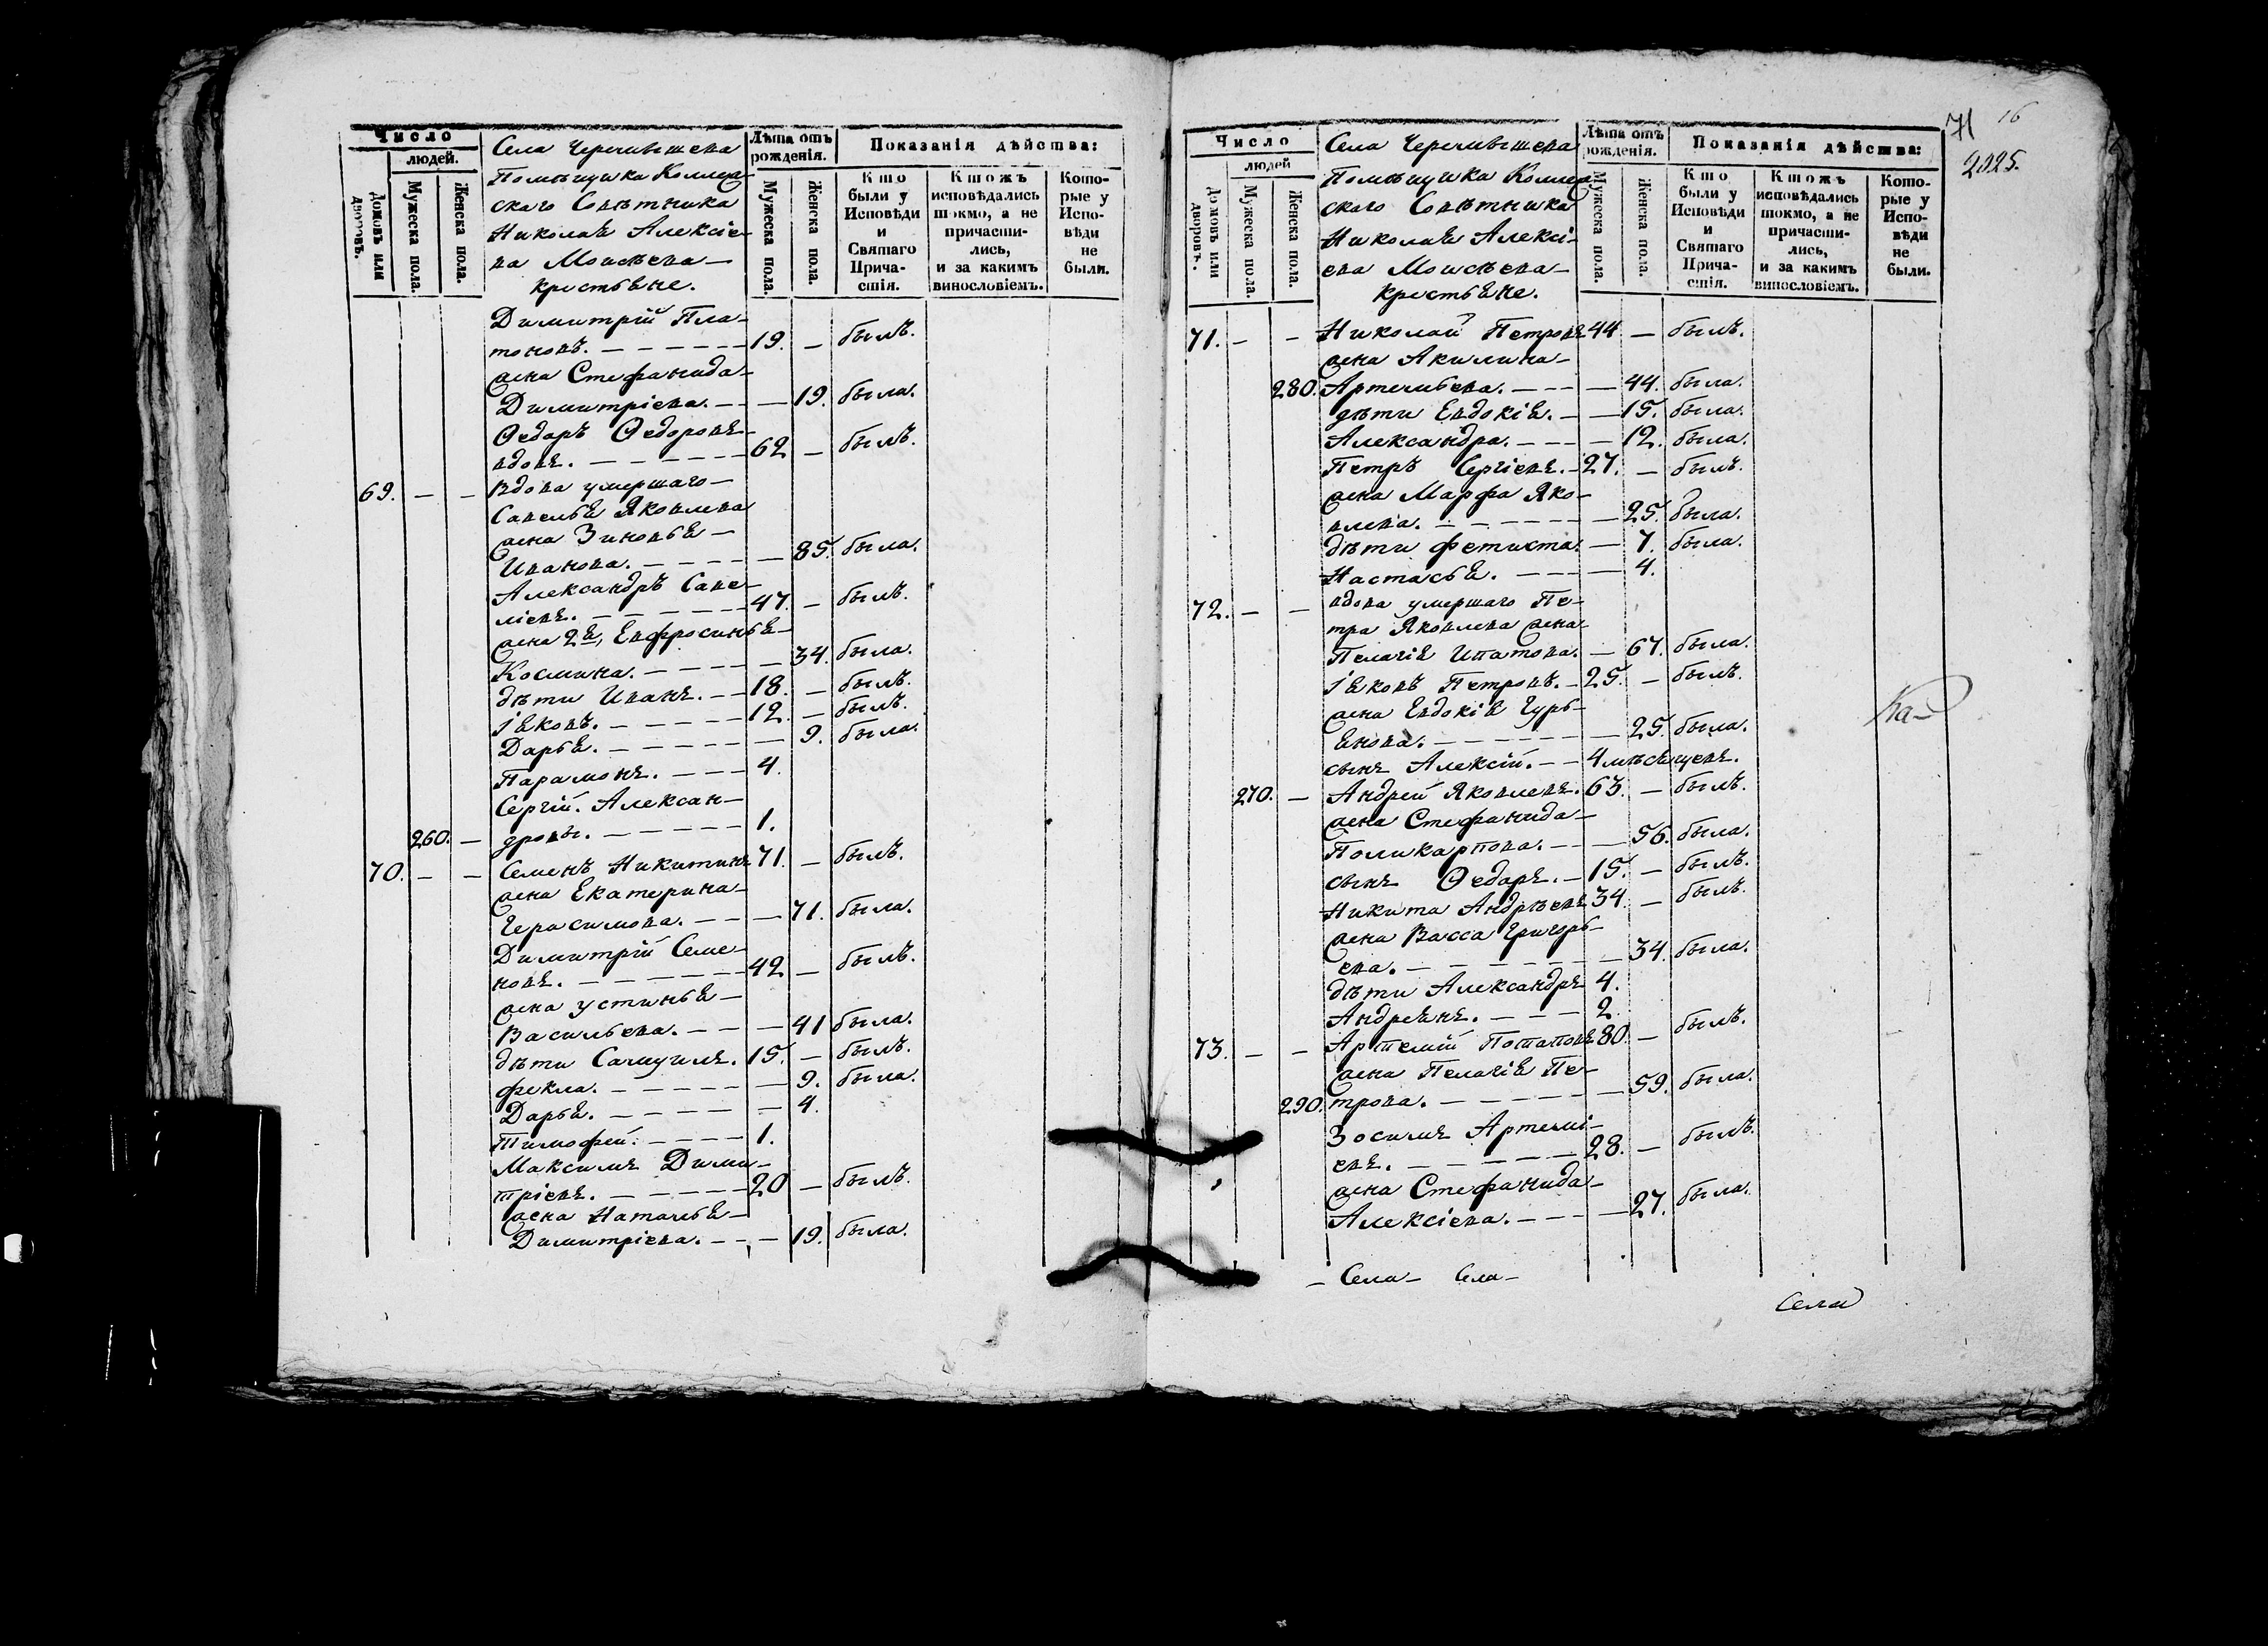 Число
людей.
Домовъ или дворовъ.
Мужеска пола.
Женска пола.
Села Черемышева
Помѣщика Коллеж-
скаго Совѣтника
Николая Алексіе-
ва Моисѣева —
крестьяне.
Лѣта отъ рожденія.
Мужеска пола.
Женска пола.
Показанія дѣйства:
Кто были у Исповѣди и Святаго Прича- стія.
Ктожъ исповѣдались токмо, а не причасти- лись, и за какимъ винословіемъ.
Кото- рые у Испо- вѣди не были.
Димитрій Пла-
тоновъ. — 19. — былъ.
жена Стефанида
Димитріева. — — 19. была.
Ѳедоръ Ѳедоровъ
вдовъ. — 62 — былъ.
69. — — Вдова умершаго —
Савелья Яковлева
жена Зиновья —
Иванова. — — 85. была.
Александръ Саве-
ліевъ. — 47. — былъ.
жена 2я, Евфросинья
Космина. — — 34. была.
дѣти Иванъ. — 18. — былъ.
Іяковъ. — 12. — былъ.
Дарья. — — 9. была.
Парамонъ. — 4.
Сергій. Алексан-
260. — дровы. — 1.
70. — — Семенъ Никитинъ 71. — былъ.
жена Екатерина
Герасимова. — — 71. была.
Димитрій Семе-
новъ. — 42 — былъ.
жена Устинья —
Васильева. — — 41 была.
дѣти Самуилъ. 15. — былъ.
Фекла. — — 9. была.
Дарья. — — 4.
Тимофей. — 1.
Максимъ Дими-
тріевъ. — 20 — былъ.
жена Наталья —
Димитріева. — — 19. была.
71 16
2025.
Число
людей
Домовъ или дворовъ.
Мужеска пола.
Женска пола.
Села Черемышева
Помѣщика Коллеж-
скаго Совѣтника
Николая Алексі-
ева Моисѣева —
крестьяне.
Лѣта отъ рожденія.
Мужеска пола.
Женска пола.
Показанія дѣйства:
Кто были у Исповѣди и Святаго Прича- стія.
Ктожъ исповѣдались токмо, а не причасти- лись, и за какимъ винословіемъ.
Кото- рые у Испо- вѣди не были.
71. — — Николай Петровъ 44 — былъ.
жена Акилина —
280. Артемьева. — — 44. была.
дѣти Евдокія. — — 15. была.
Александра. — — 12. была.
Петръ Сергіевъ. 27. — былъ.
жена Марфа Яко-
влева. — — 25. была.
дѣти Фетиста. — 7. была.
Настасья. — — 4.
72. — — вдова умершаго Пе-
тра Яковлева жена
Пелагія Ипатова. — 67. была.
Іяковъ Петровъ. 25. — былъ.
жена Евдокія Гурь-
янова. — — 25. была.
сынъ Алексій. — 4 мѣсяцевъ.
270. — Андрей Яковлевъ. 63. — былъ.
жена Стефанида —
Поликарпова. — — 56. была.
сынъ Ѳедоръ. — 15. — былъ.
Никита Андрѣевъ 34. — былъ.
жена Васса Григорь-
ева. — — 34. была.
дѣти Александръ 4.
Андреянъ. — 2.
73. — — Артемій Потаповъ 80. — былъ.
жена Пелагія Пе-
290. трова. — — 59. была.
Зосимъ Артемі-
евъ. — 28. — былъ.
жена Стефанида —
Алексіева. — — 27. была.
Ка-
— Села — Села —
Села